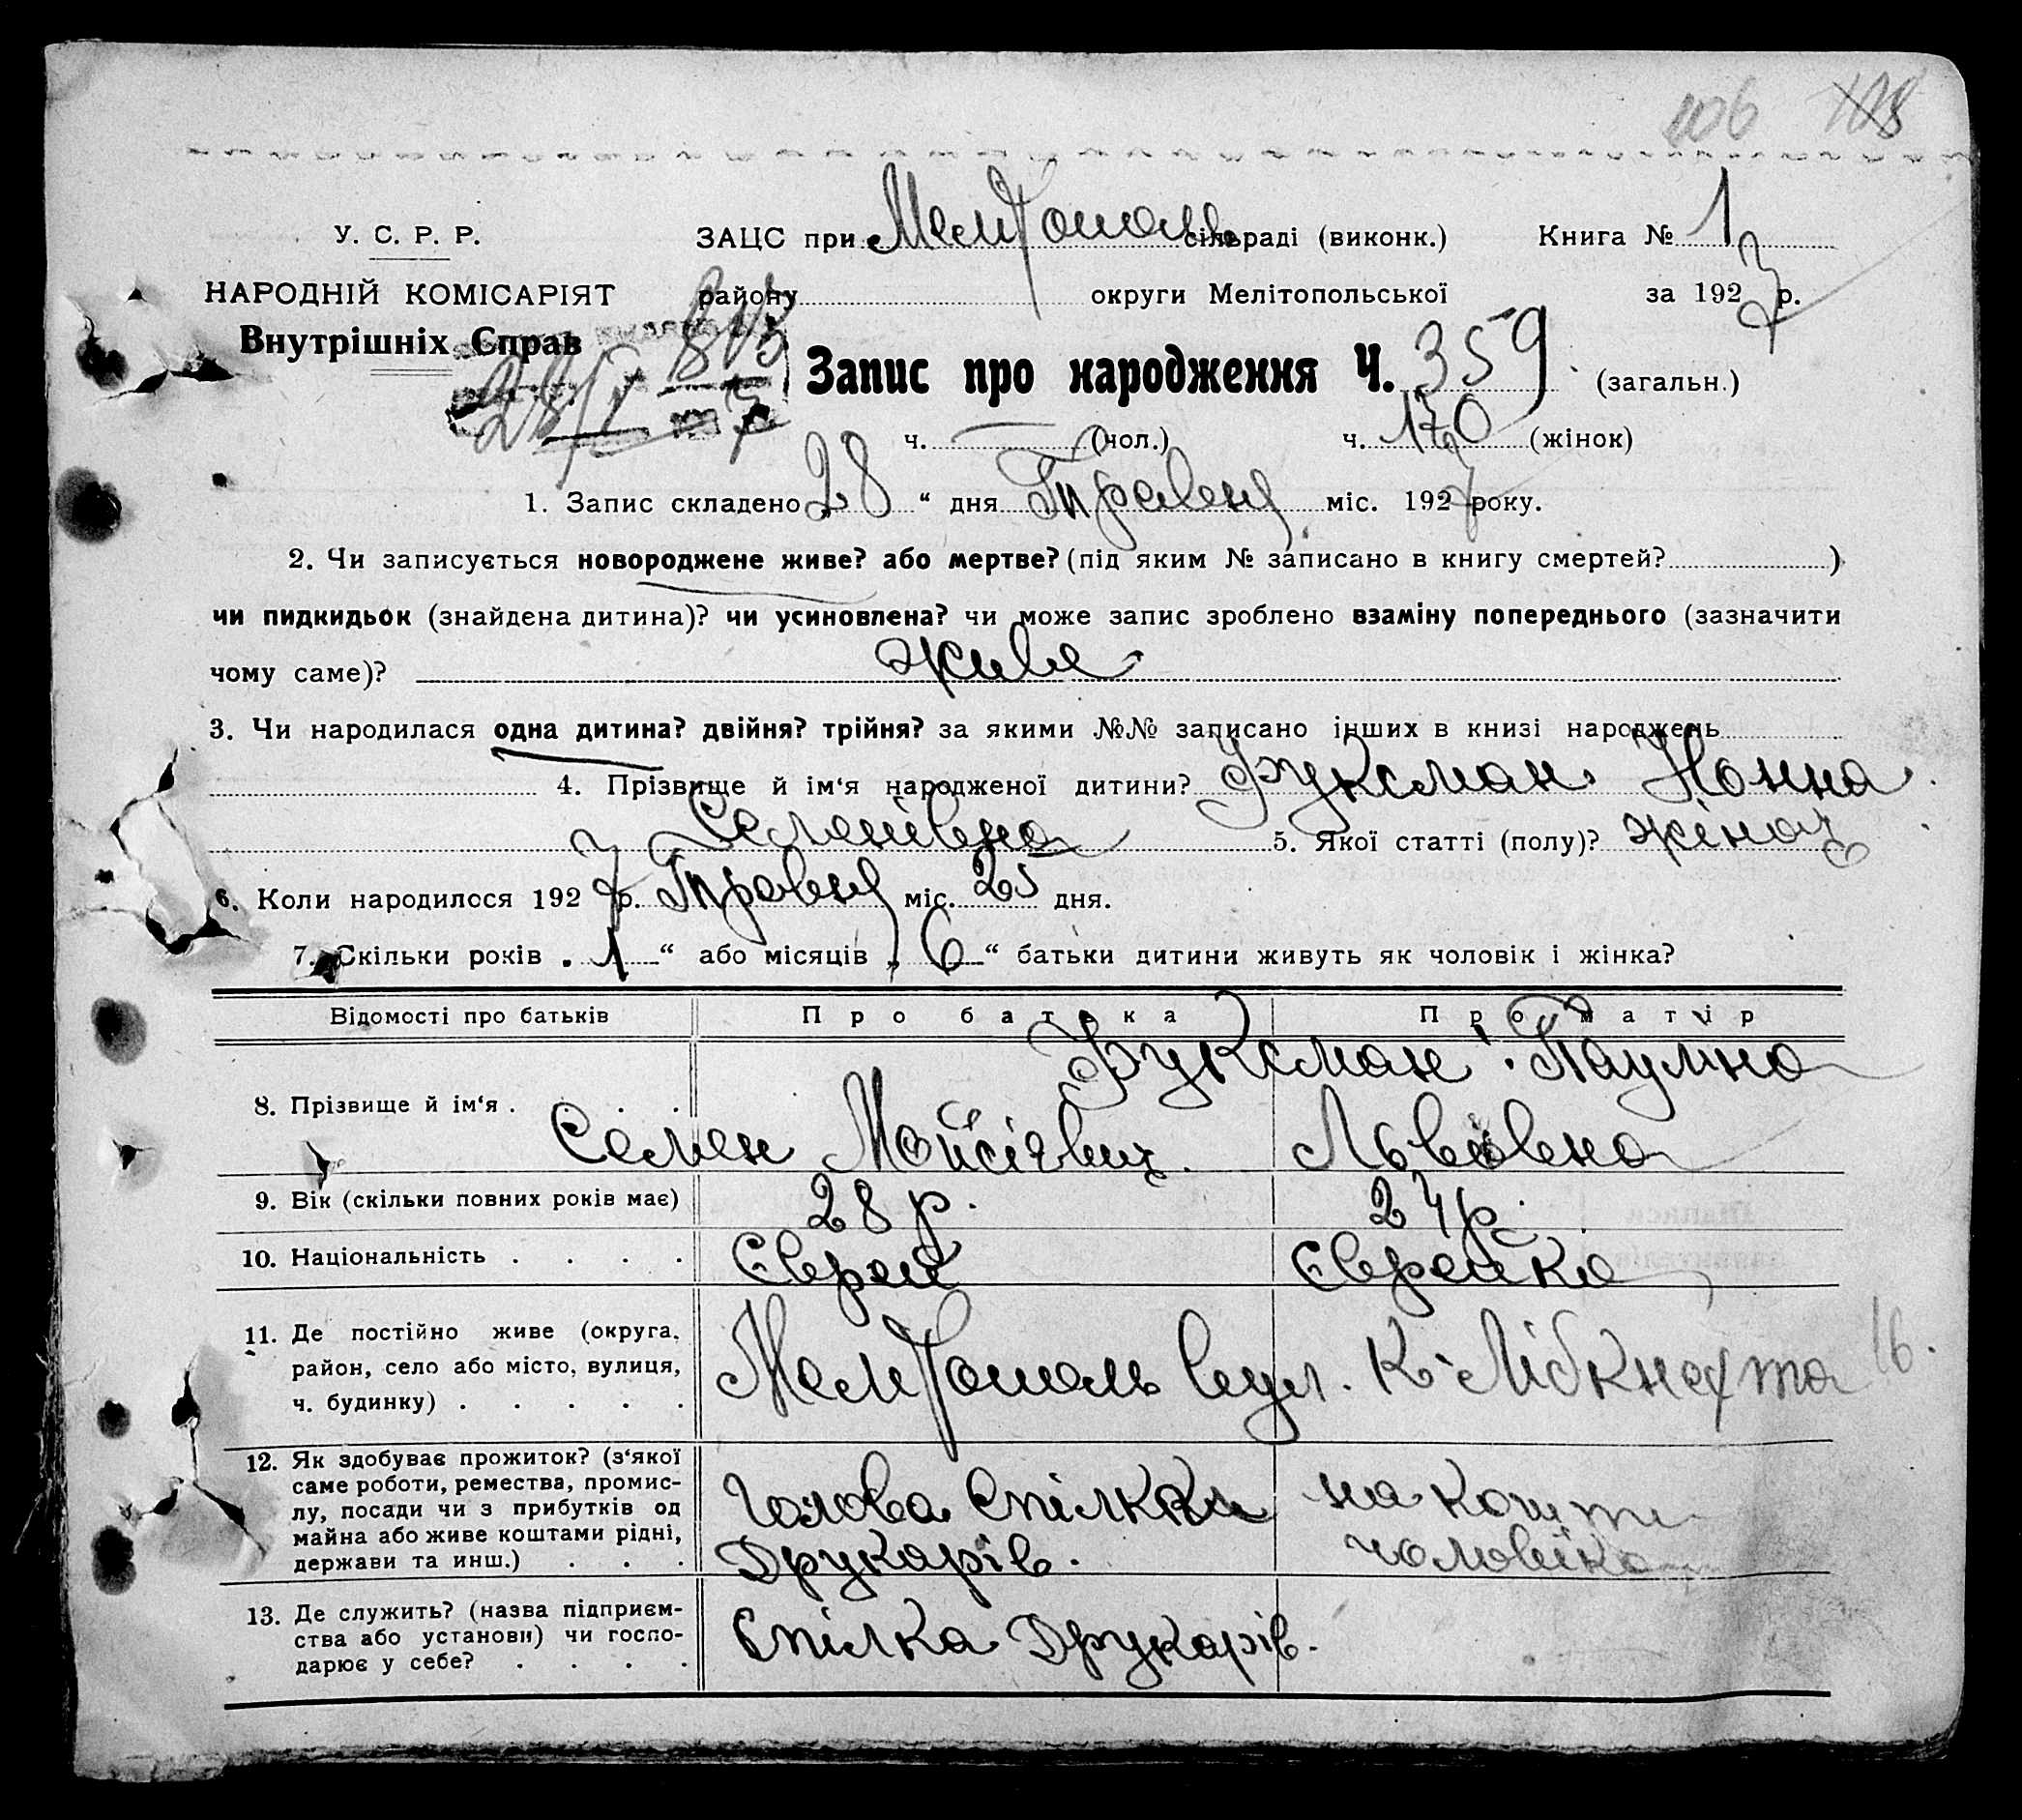 106 108
У. С. Р. Р. ЗАЦС при Мелітополь сільраді (виконк.) Книга № 1
НАРОДНІЙ КОМІСАРІЯТ району округи Мелітопольської за 1927 р.
Внутрішніх Справ
803
28/V 7
Запис про народження Ч. 359 (загальн.)
ч. — (чол.) ч. 170 (жінок)
1. Запис складено „28“ дня Травня міс. 1927 року.
2. Чи записується новороджене живе? або мертве? (під яким № записано в книгу смертей? )
чи пидкидьок (знайдена дитина)? чи усиновлена? чи може запис зроблено взаміну попереднього (зазначити
чому саме)? живе
3. Чи народилася одна дитина? двійня? трійня? за якими №№ записано інших в книзі народжень
4. Прізвище й ім‘я народженої дитини? Фуксман Нонна
Семенівна 5. Якої статті (полу)? жіноч
6. Коли народилося 1927 р. Травня міс. 25 дня.
7. Скільки років „1“ або місяців „6“ батьки дитини живуть як чоловік і жінка?
Відомості про батьків Про батька Про матір
8. Прізвище й ім‘я . . . . Фуксман Пауліна
Семен Мойсієвич Львовна
9. Вік (скільки повних років має) 28 р. 24 р.
10. Національність . . . . Єврей Єврейка
11. Де постійно живе (округа,
район, село або місто, вулиця,
ч. будинку) . . . . .
Мелітополь вул. К. Лібкнехта 16.
12. Як здобуває прожиток? (з‘якої
саме роботи, ремества, промис-
лу, посади чи з прибутків од
майна або живе коштами рідні,
держави та инш.) . . .
Голова Спілки на кошти
Друкарів. чоловіка
13. Де служить? (назва підприєм-
ства або установи) чи госпо-
дарює у себе? . . . .
Спілка Друкарів.